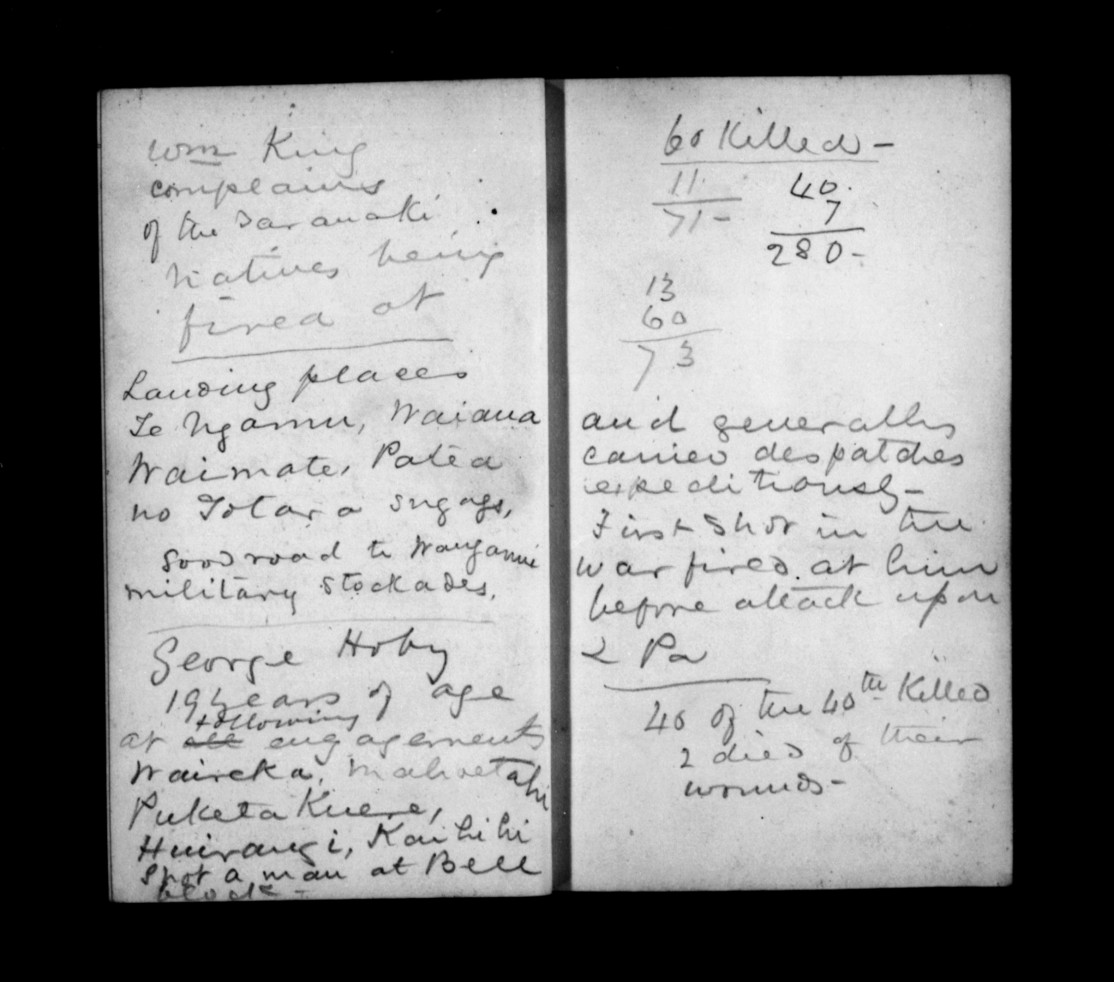 Wm King
complains
of the Taranaki
natives being
fired at
Landing places
Te Ngamu, Waiaua
Waimate, Patea
no Totara
Good road to Wanganui
military stockades.
George Hoby
19 years of age
following
at all engagements
Waireka, Mahoetahi
Puketakuere,
Huirangi, Kaihihi
Shot a man at Bell
block -
60 Killed -
11 40
71 - 7
280 -
13
60
73
and generally
carried despatches
expeditiously -
First shot in the
war fired at him
before attack upon
L Pa
40 of the 40th Killed
2 died of their
wounds -